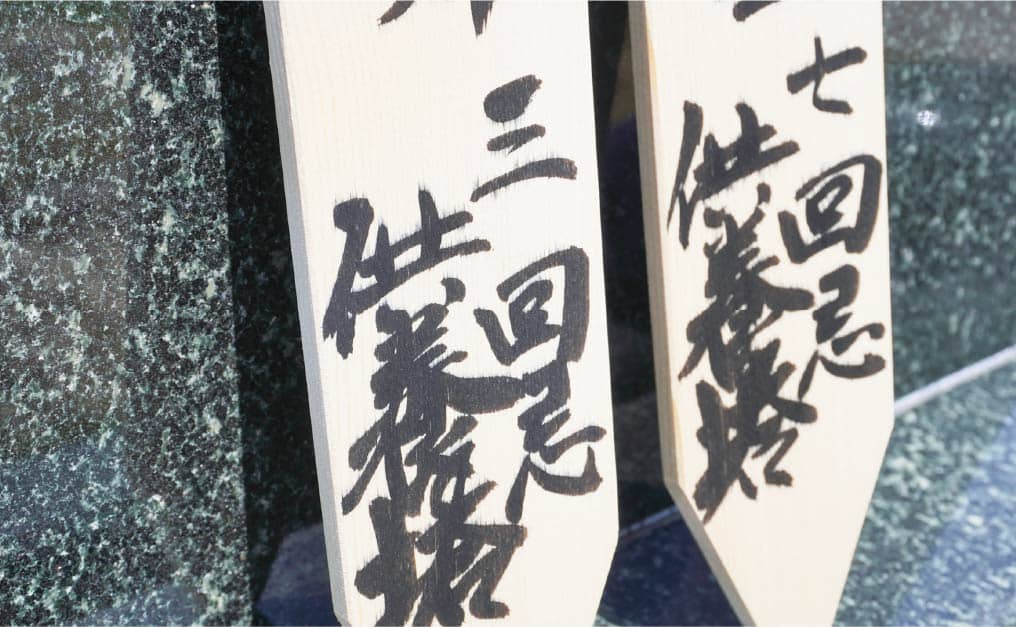 七回忌
供養塔
三回忌
供養塔